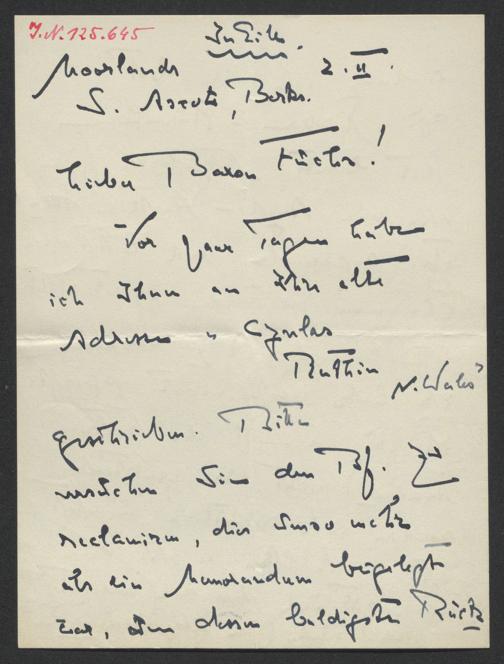 I.N. 125.645
In Eile.
Moorlands 2.II.
S. Ascot, Berks.
Lieber Baron Fuchs!
Vor paar Tagen habe
ich Ihnen an Ihre alte
Adresse
Ruthin
N. Wales
geschrieben. Bitte
versuchen Sie den Bf. zu
reclamieren, dies umso mehr
als ein Memorandum beigelegt
war, um dessen baldigste